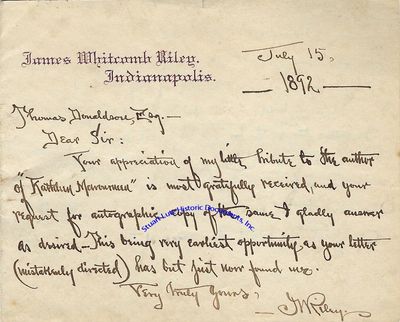 James Whitcomb Riley,
Indianapolis.
July 15,
— 1892 —
Thomas Donaldson, Esq. —
Dear Sir:
Your appreciation of my little tribute to the author
of "Kathleen Mavourneen" is most gratefully received, and your
request for autographic copy of the same I gladly answer
as desired — This being very earliest opportunity, as your letter
(mistakenly directed) has but just now found me.
Very truly yours,
JW Riley.
Stuart Lutz Historic Documents, Inc.